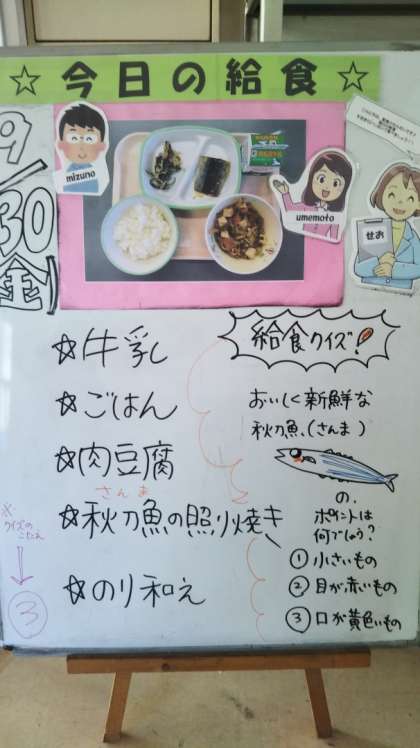 ☆今日の給食☆
9/30(金)
mizuno
umemoto
せお
☆牛乳
☆ごはん
☆肉豆腐
さんま
☆秋刀魚の照り焼き
☆のり和え
給食クイズ!
おいしく新鮮な
秋刀魚、(さんま)
の、
ポイントは
何でしょう?
①小さいもの
②目が赤いもの
③口が黄色いもの
※
クイズの
こたえ
③